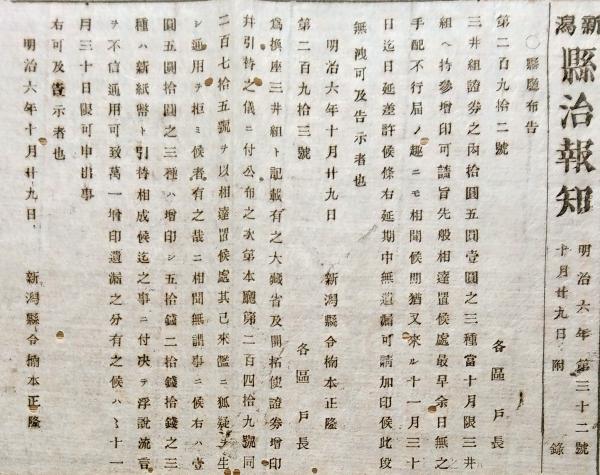 新潟縣治報知
明治六年 第三十二號
十月廿九日 附錄
〇縣廳布告
第二百九拾二號
各區戸長
三井組證券之內拾圓五圓壹圓之三種當十月限三井
組ヘ持參增印可請旨先般相達置候處最早余日無之
手配不行屆ノ趣ニモ相聞候間猶又來ル十一月三十
日迄日延差許候條右延期中無遺漏可請加印候此段
無洩可及告示者也
明治六年十月廿九日
新潟縣令楠本正隆
第二百九拾三號
各區戸長
爲換座三井組ト記載有之大藏省及開拓使證券增印
幷引替之儀ニ付公布之次第本廳第二百四拾九號同
二百七拾五號ヲ以相達置候處其已來濫ニ狐疑ヲ生
シ通用ヲ拒ミ候者有之哉ニ相聞無謂事ニ候右ハ壹
圓五圓拾圓之三種ハ增印シ五拾錢二拾錢拾錢之三
種ハ新紙幣ト引替相成候迄之事ニ付決テ浮說流言
ヲ不信通用可致萬一增印遺漏之分有之候ハヽ十一
月三十日限可申出事
右可及告示者也
明治六年十月廿九日
新潟縣令楠本正隆